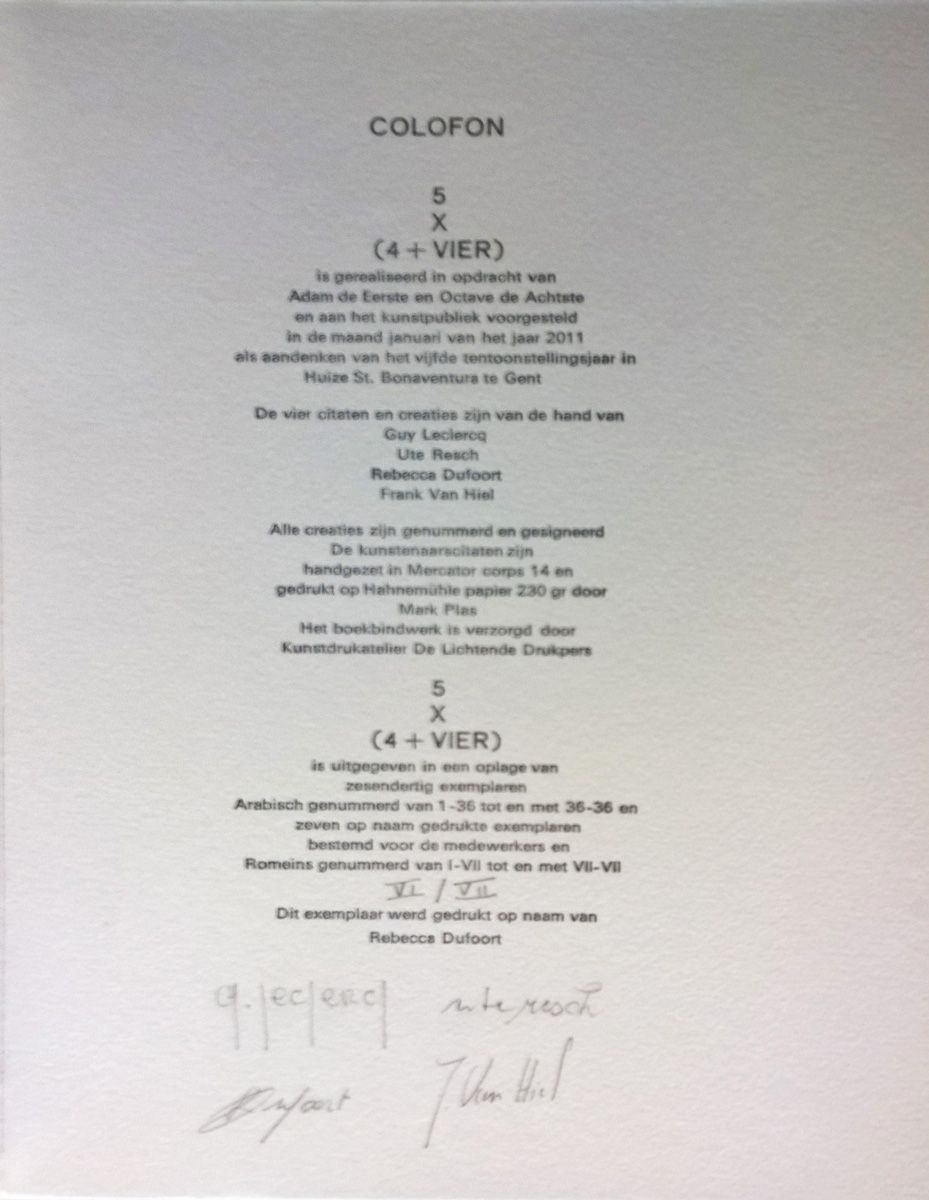 COLOFON
5
X
(4 + VIER)
is gerealiseerd in opdracht van
Adam de Eerste en Octave de Achtste
en aan het kunstpubliek voorgesteld
in de maand januari van het jaar 2011
als aandenken van het vijfde tentoonstellingsjaar in
Huize St. Bonaventura te Gent
De vier citaten en creaties zijn van de hand van
Guy Leclercq
Ute Resch
Rebecca Dufoort
Frank Van Hiel
Alle creaties zijn genummerd en gesigneerd
De kunstenaarscitaten zijn
handgezet in Mercator corps 14 en
gedrukt op Hahnemühle papier 230 gr door
Mark Plas
Het boekbindwerk is verzorgd door
Kunstdrukatelier De Lichtende Drukpers
5
X
(4 + VIER)
is uitgegeven in een oplage van
zesendertig exemplaren
Arabisch genummerd van 1-36 tot en met 36-36 en
zeven op naam gedrukte exemplaren
bestemd voor de medewerkers en
Romeins genummerd van I-VII tot en met VII-VII
VI / VII
Dit exemplaar werd gedrukt op naam van
Rebecca Dufoort
g. leclercq ute resch
Dufoort F. Van Hiel